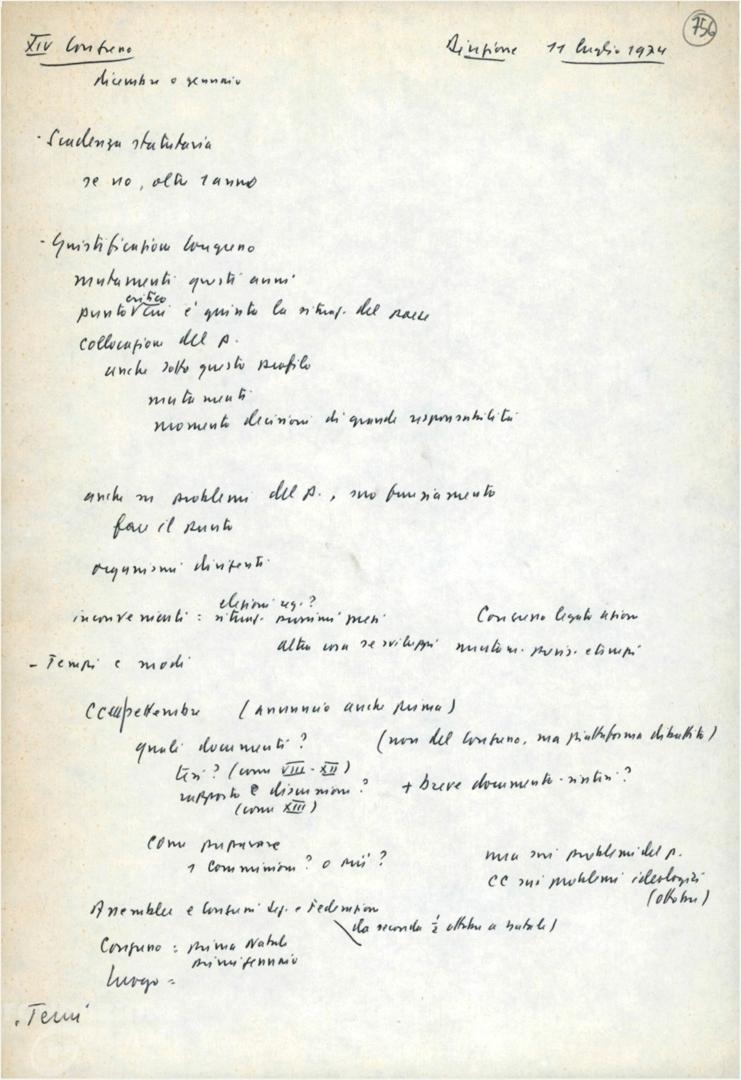 756
XIV Congresso Direzione 11 luglio 1974
dicembre o gennaio
- Scadenza statutaria
se no, oltre 1 anno
- Giustificazione Congresso
mutamenti questi anni
critico
punto cui è giunta la situaz. del paese
collocazione del p.
anche sotto questo profilo
mutamenti
momento decisioni di grande responsabilità
anche su problemi del p., suo funzionamento
fare il punto
organismi dirigenti
elezioni reg.?
inconvenienti = situaz. prossimi mesi Congresso legato azione
altra cosa se sviluppi mutam. previs. e tempi
- Tempi e modi
CC settembre (annuncio anche prima)
quali documenti? (non del Congresso, ma piattaforma dibattito)
tesi? (come VIII - XII)
rapporto e discussione? + breve documento-sintesi?
(come XIII)
Come preparare
1 Commissione? o più? una sui problemi del p.
CC sui problemi ideologici
(ottobre)
Assemblee e Congressi Sez. e Federazione
(da seconda ½ ottobre a natale)
Congresso = prima Natale
primi gennaio
luogo =
. Temi